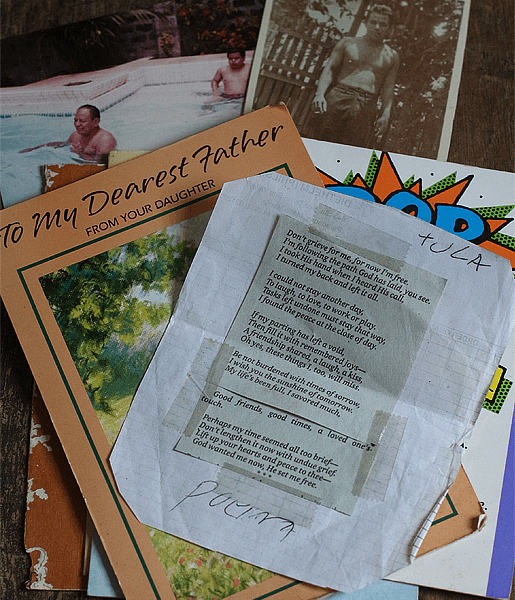 To My Dearest Father
FROM YOUR DAUGHTER
POP
TULA
Don't grieve for me, for now I'm free.
I'm following the path God has laid, you see.
I took His hand when I heard His call,
I turned my back and left it all.
I could not stay another day,
To laugh, to love, to work or play.
Tasks left undone must stay that way,
I found the peace at the close of day.
If my parting has left a void,
Then fill it with remembered joys—
A friendship shared, a laugh, a kiss,
Oh yes, these things I, too, will miss.
Be not burdened with times of sorrow,
I wish you the sunshine of tomorrow.
My life's been full, I savored much,
Good friends, good times, a loved one's
touch.
Perhaps my time seemed all too brief—
Don't lengthen it now with undue grief.
Lift up your hearts and peace to thee—
God wanted me now, He set me free.